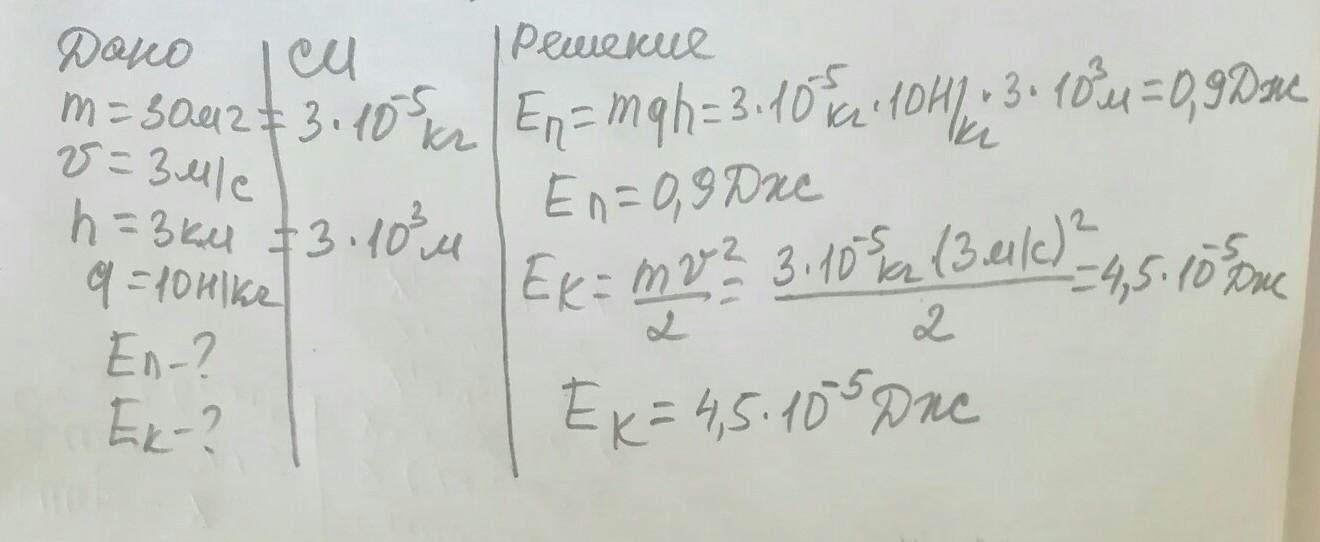 Дано
m = 30мг = 3·10⁻⁵кг
v = 3м/с
h = 3км = 3·10³м
g = 10Н/кг
Eп-?
Eк-?
СИ
Решение
Eп = mgh = 3·10⁻⁵кг·10Н/кг·3·10³м = 0,9Дж
Eп = 0,9Дж
Eк = mv²/2 = 3·10⁻⁵кг·(3м/с)²/2 = 4,5·10⁻⁵Дж
Eк = 4,5·10⁻⁵Дж